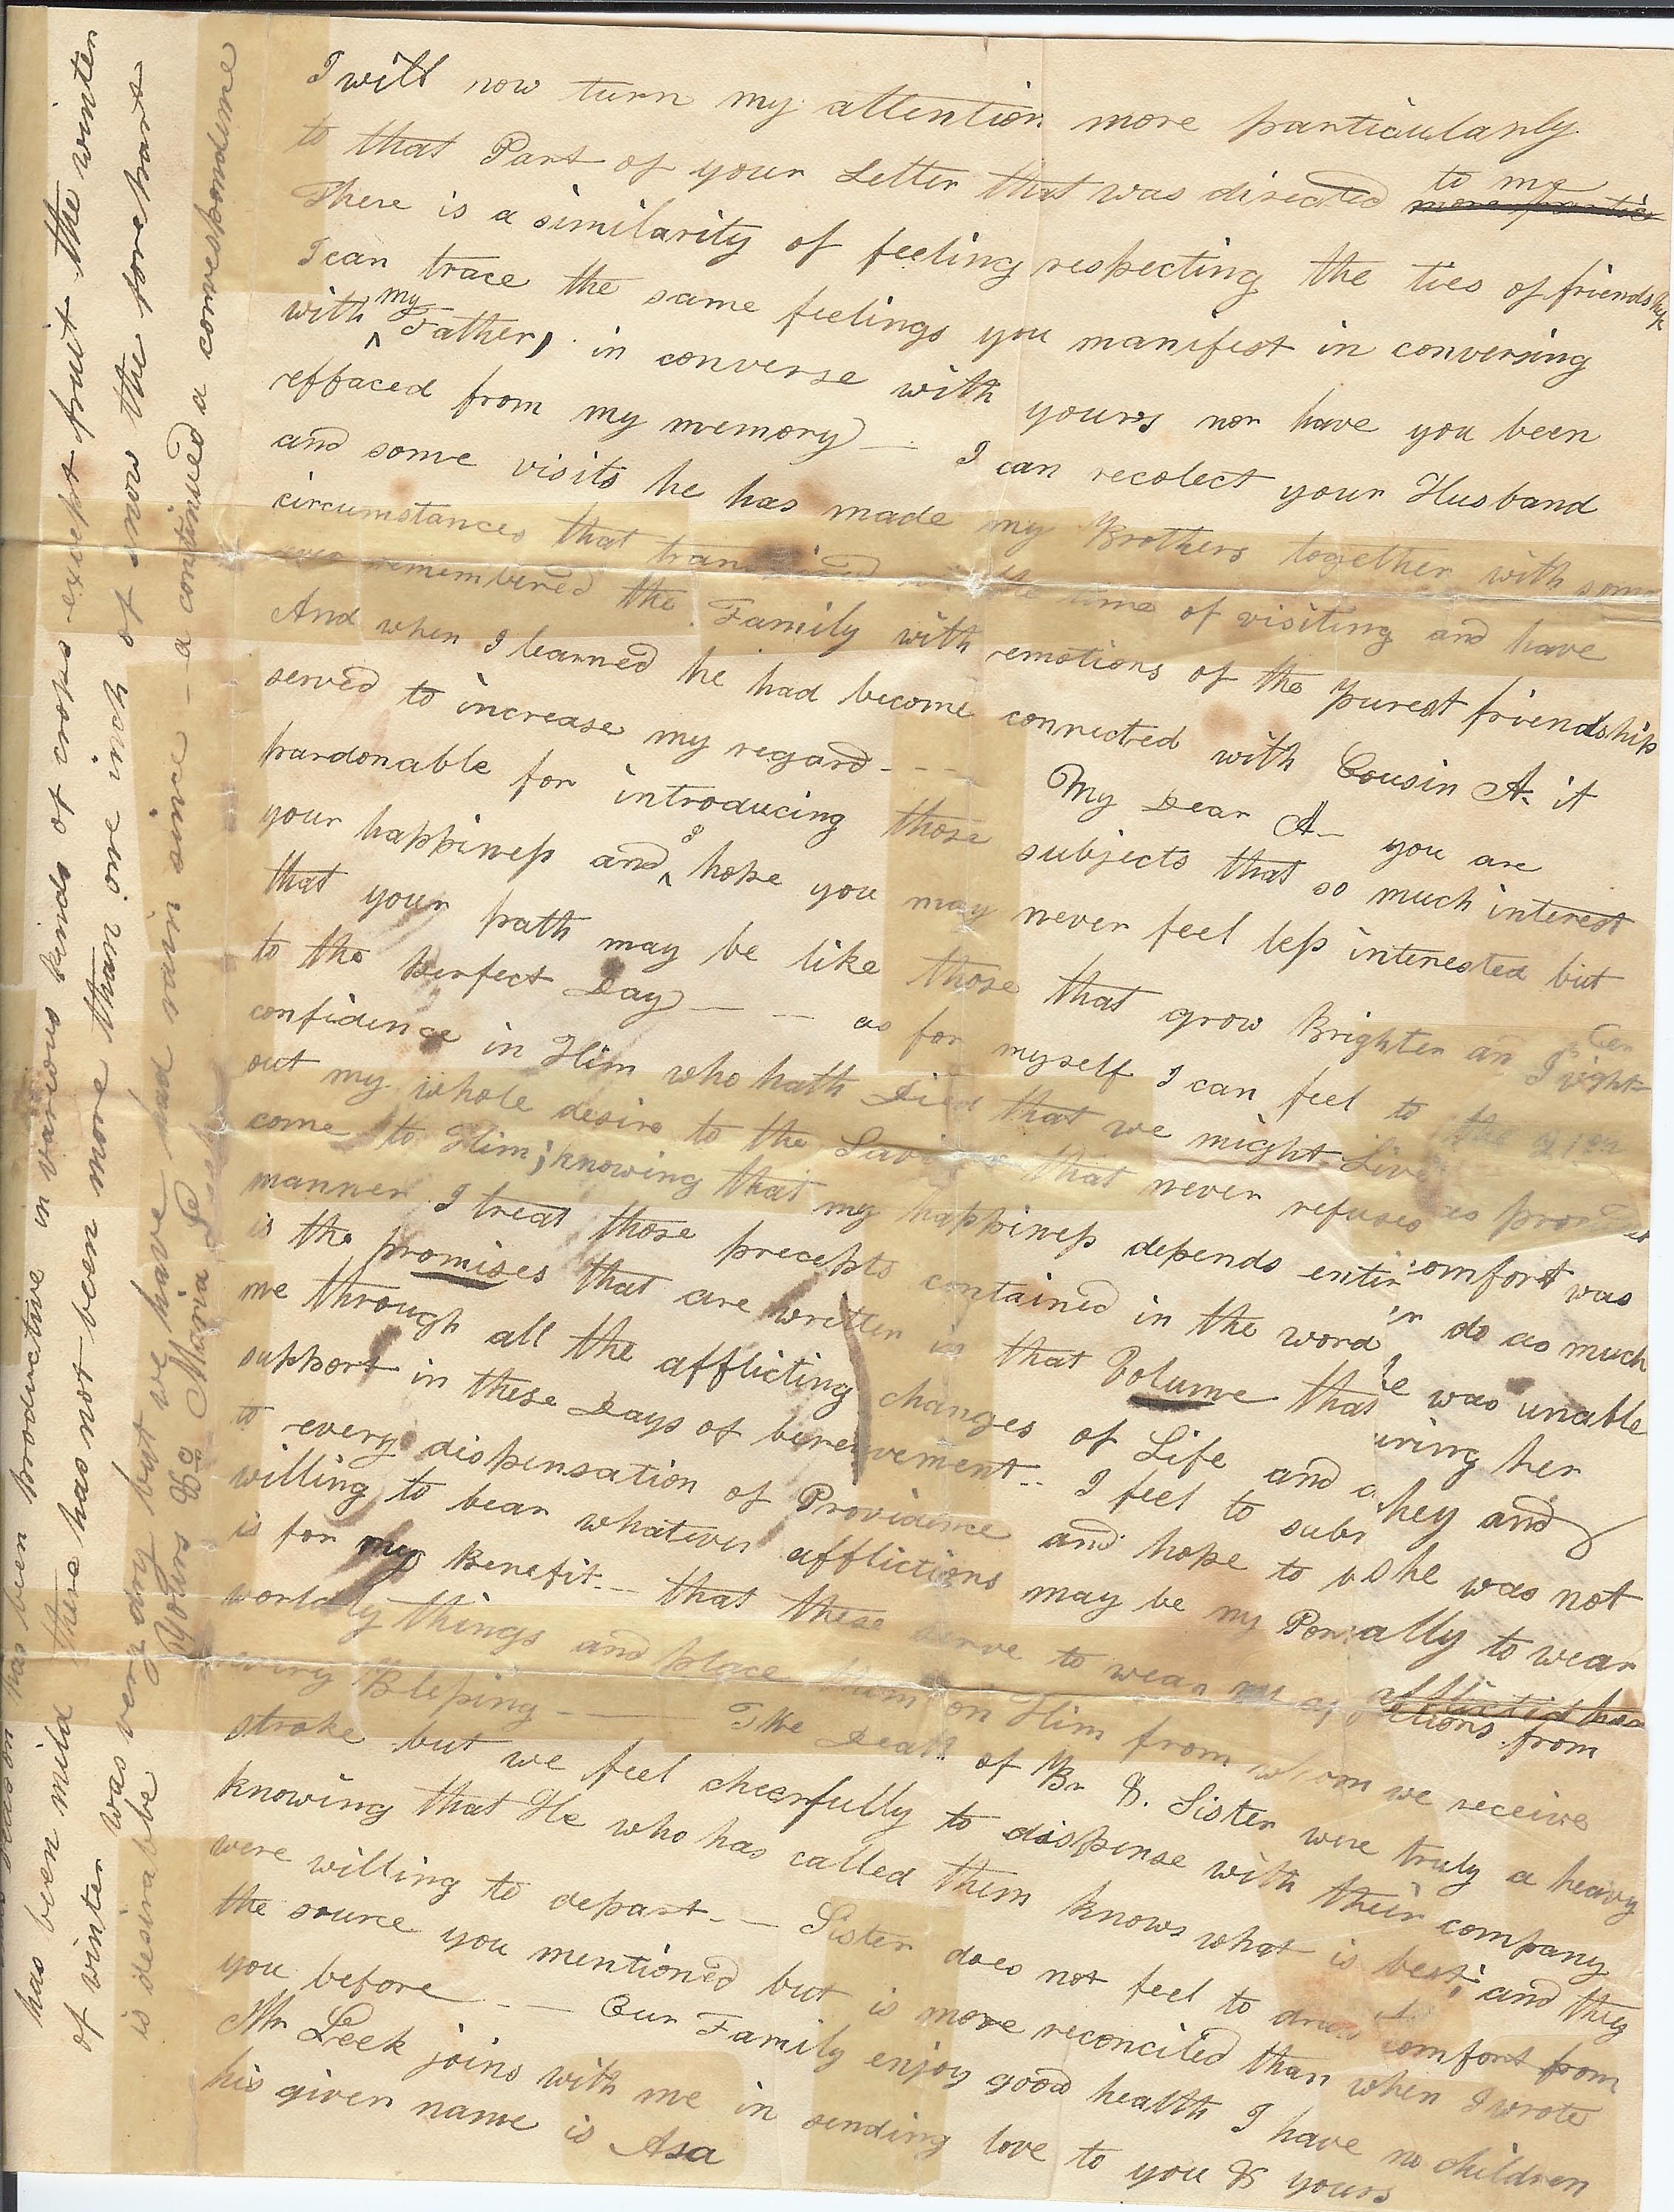 I will now turn my attention more particularly
to that Part of your Letter that was directed to me more partic
There is a similarity of feeling respecting the ties of friendship
I can trace the same feelings you manifest in conversing
with my Father, in converse with yours nor have you been
effaced from my memory — I can recolect your Husband
and some visits he has made my Brothers together with some
circumstances that time of visiting and have
ever remembered the Family with emotions of the purest friendship
And when I learned he had become connected with Cousin A. it
served to increase my regard - - - My Dear A— you are
pardonable for introducing those subjects that so much interest
your happiness and I hope you may never feel less interested but
that your path may be like those that grow Brighter an Brighter
to the perfect Day — — as for myself I can feel to
confidence in Him who hath Died that we might Live
out my whole desire to the Saviour that never refuses
come to Him; knowing that my happiness depends omfort was
manner I treat those precepts contained in the word do as much
is the promises that are written in that Volume that he was unable
me through all the afflicting changes of Life and uring her
support in these Days of bereavement - - I feel to hey and
to every dispensation of Providence and hope to She was not
willing to bear whatever afflictions may be my ally to wear
is for my Benefit - - that these serve to wean my afflicted has
worldly things and place them on Him from whom we receive ections from
every Blessing - —— The Death of Br & Sister were truly a heavy
stroke but we feel cheerfully to dispense with their company
knowing that He who has called them knows what is best; and they
were willing to depart - — Sister does not feel to draw comfort from
the source you mentioned but is more reconciled than when I wrote
you before - — Our Family enjoy good health I have no children
Mr Leek joins with me in sending love to you & yours
his given name is Asa
has been productive in various kinds of crops except fruit the winter
has been mild there has not been more than one inch of snow the forepart
of winter was very dry but we have had rain since — a continued a correspondence
is desirable Yours &c Maria Leek